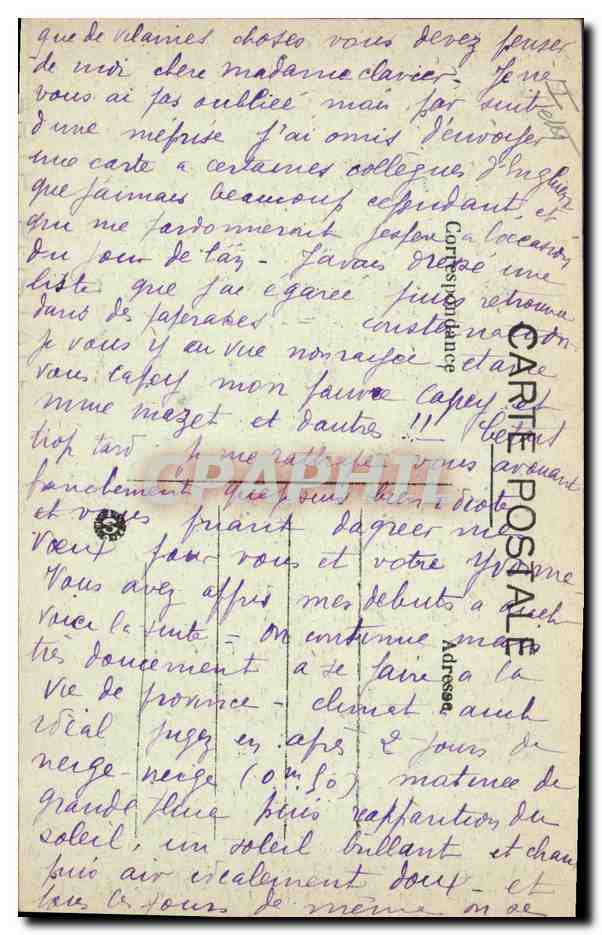 que de vilaines choses vous devez penser
de moi chère madame Clavier. Je ne
vous ai pas oubliée mais par suite
d'une méprise j'ai omis d'envoyer
une carte a certaines collègues d'Enghien
que j'aimais beaucoup cependant, et
qui me pardonneront j'espère a l'occasion
du jour de l'an - J'avais dressé une
liste que j'ai égarée puis retrouvée
dans des paperasses - consternation
je vous y ai vue non rayée et avec
vous Capey mon pauvre Capey et
mme Mazet et d'autres !! - 
trop tard je me rattrape vous avouant
franchement que je suis bien idiote
et vous priant d'agréer mes
vœux pour vous et votre Yvonne
Vous avez appris mes débuts a Auch
voici la suite = on continue mais
très doucement a se faire a la
vie de province - climat Auch
idéal jugez en après 2 jours de
neige - neige (0m50) matinée de
grande pluie puis réapparition du
soleil, un soleil brillant et chau
puis air idéalement doux - et
tous les jours de même on se
Correspondance
CARTE POSTALE
Adresse
CPAPHIL